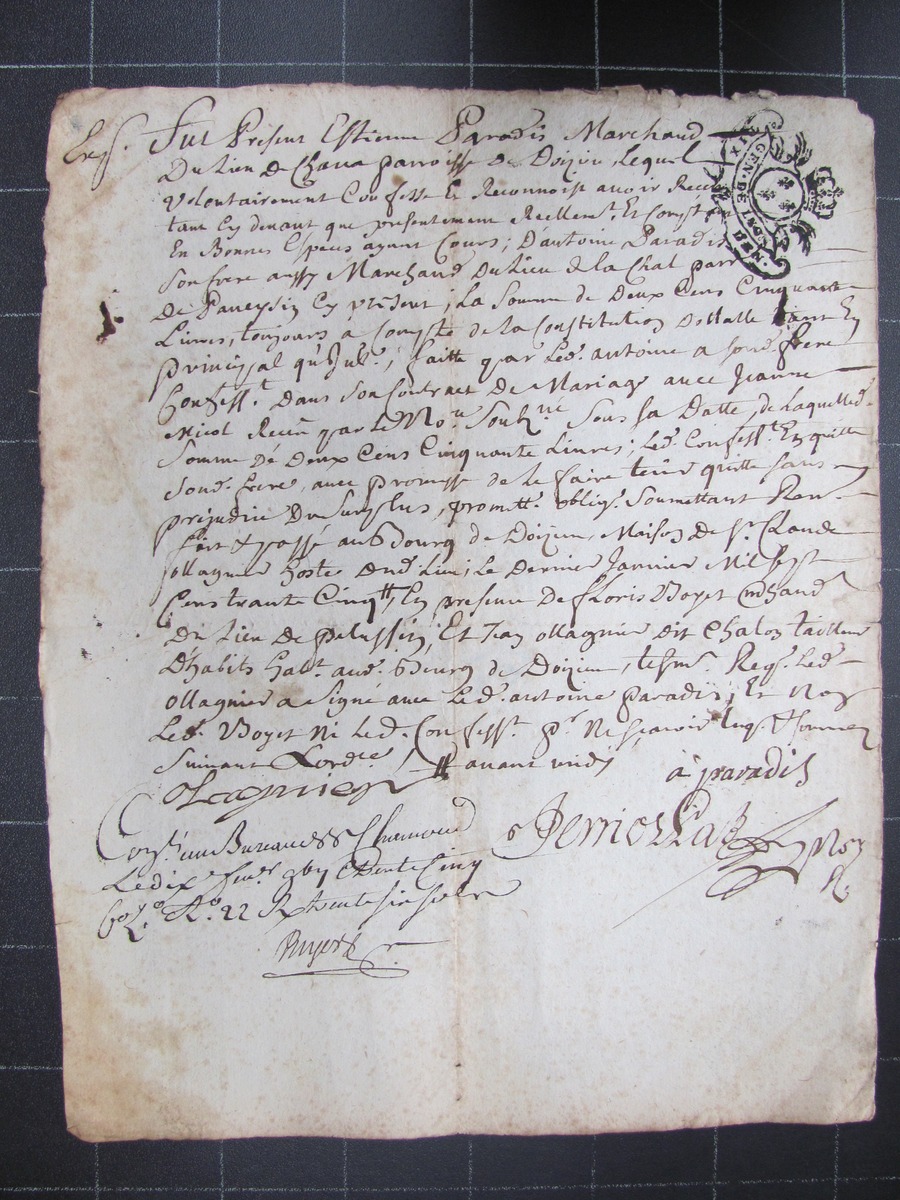 Exp. Fut Présent Estienne Paradis Marchand
Du Lieu de Chaua parroisse de Doizieu, Lequel
volontairement Confesse Et Reconnoist auoir Receu
tant Cy deuant que présentement Reellemt. Et Compt
En Bonnes Especes ayant Cours; D'antoine Paradis
Son frere aussy Marchand Du Lieu de la Chal parr
De Paueysin Cy présent; La Somme de Deux Cens Cinquante
Liures, toujours a Compte de la Constitution Dotalle tant En
principal qu'; faitte par Led. antoine a Sond. frere
Confesst. dans Son Contract de Mariage auec Jeanne
Nicol Receu par le Nore. Soubzné. Sous Sa Datte, de Laquelled.
Somme de Deux Cens Cinquante Liures; Led. Confesst. En quitte
Sond. frere, auec promesse de le faire tenir quitte sans
préjudice Du Surplus, promtt. oblig. Soumettant Ren
fait & passé au Bourg de Doizieu, Maison de Sr. Claude
ollagnier hoste Dud. Lieu, Le Dernier Janvier Mil Sept
Cens trante Cinq, En presence De floris Boyet Mchand
Du Lieu de pelussin, Et Jean ollagnier dit Chalon tailleur
D'habits habt. aud. Bourg de Doizieu, tesms. Reqs. Led.
ollagnier a Signé auec Led. antoine paradis; Et Non
Led. Boyet ni Led. Confesst. pr. ne sçauoir Enqs. & Sommez
Suiuant Lordce. avant midy
à paradis
Olagnier
Contlé. au Bureau de St Chamond
Le dix feurer. 1700 trente Cinq
fo. 22 R trente six sols
GEN. DE